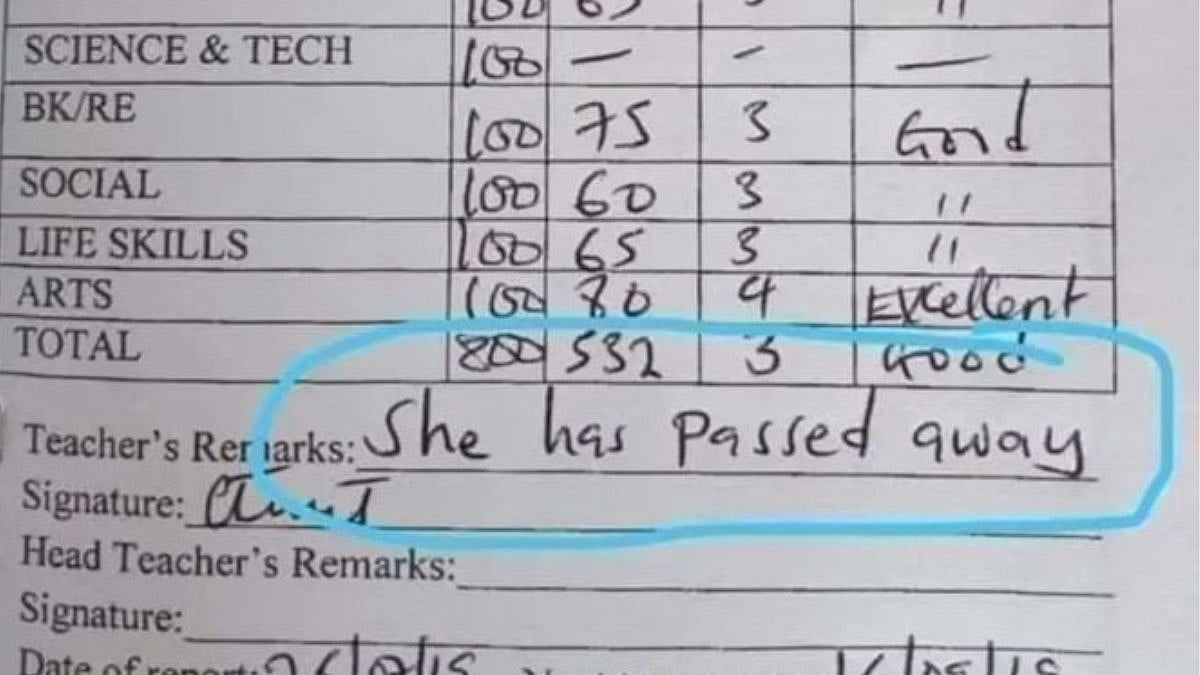 100 65 3 "
SCIENCE & TECH 100 — — —
BK/RE 100 75 3 Good
SOCIAL 100 60 3 "
LIFE SKILLS 100 65 3 "
ARTS 100 80 4 Excellent
TOTAL 800 532 3 Good
Teacher's Remarks: She has passed away
Signature:
Head Teacher's Remarks:
Signature:
Date of report: